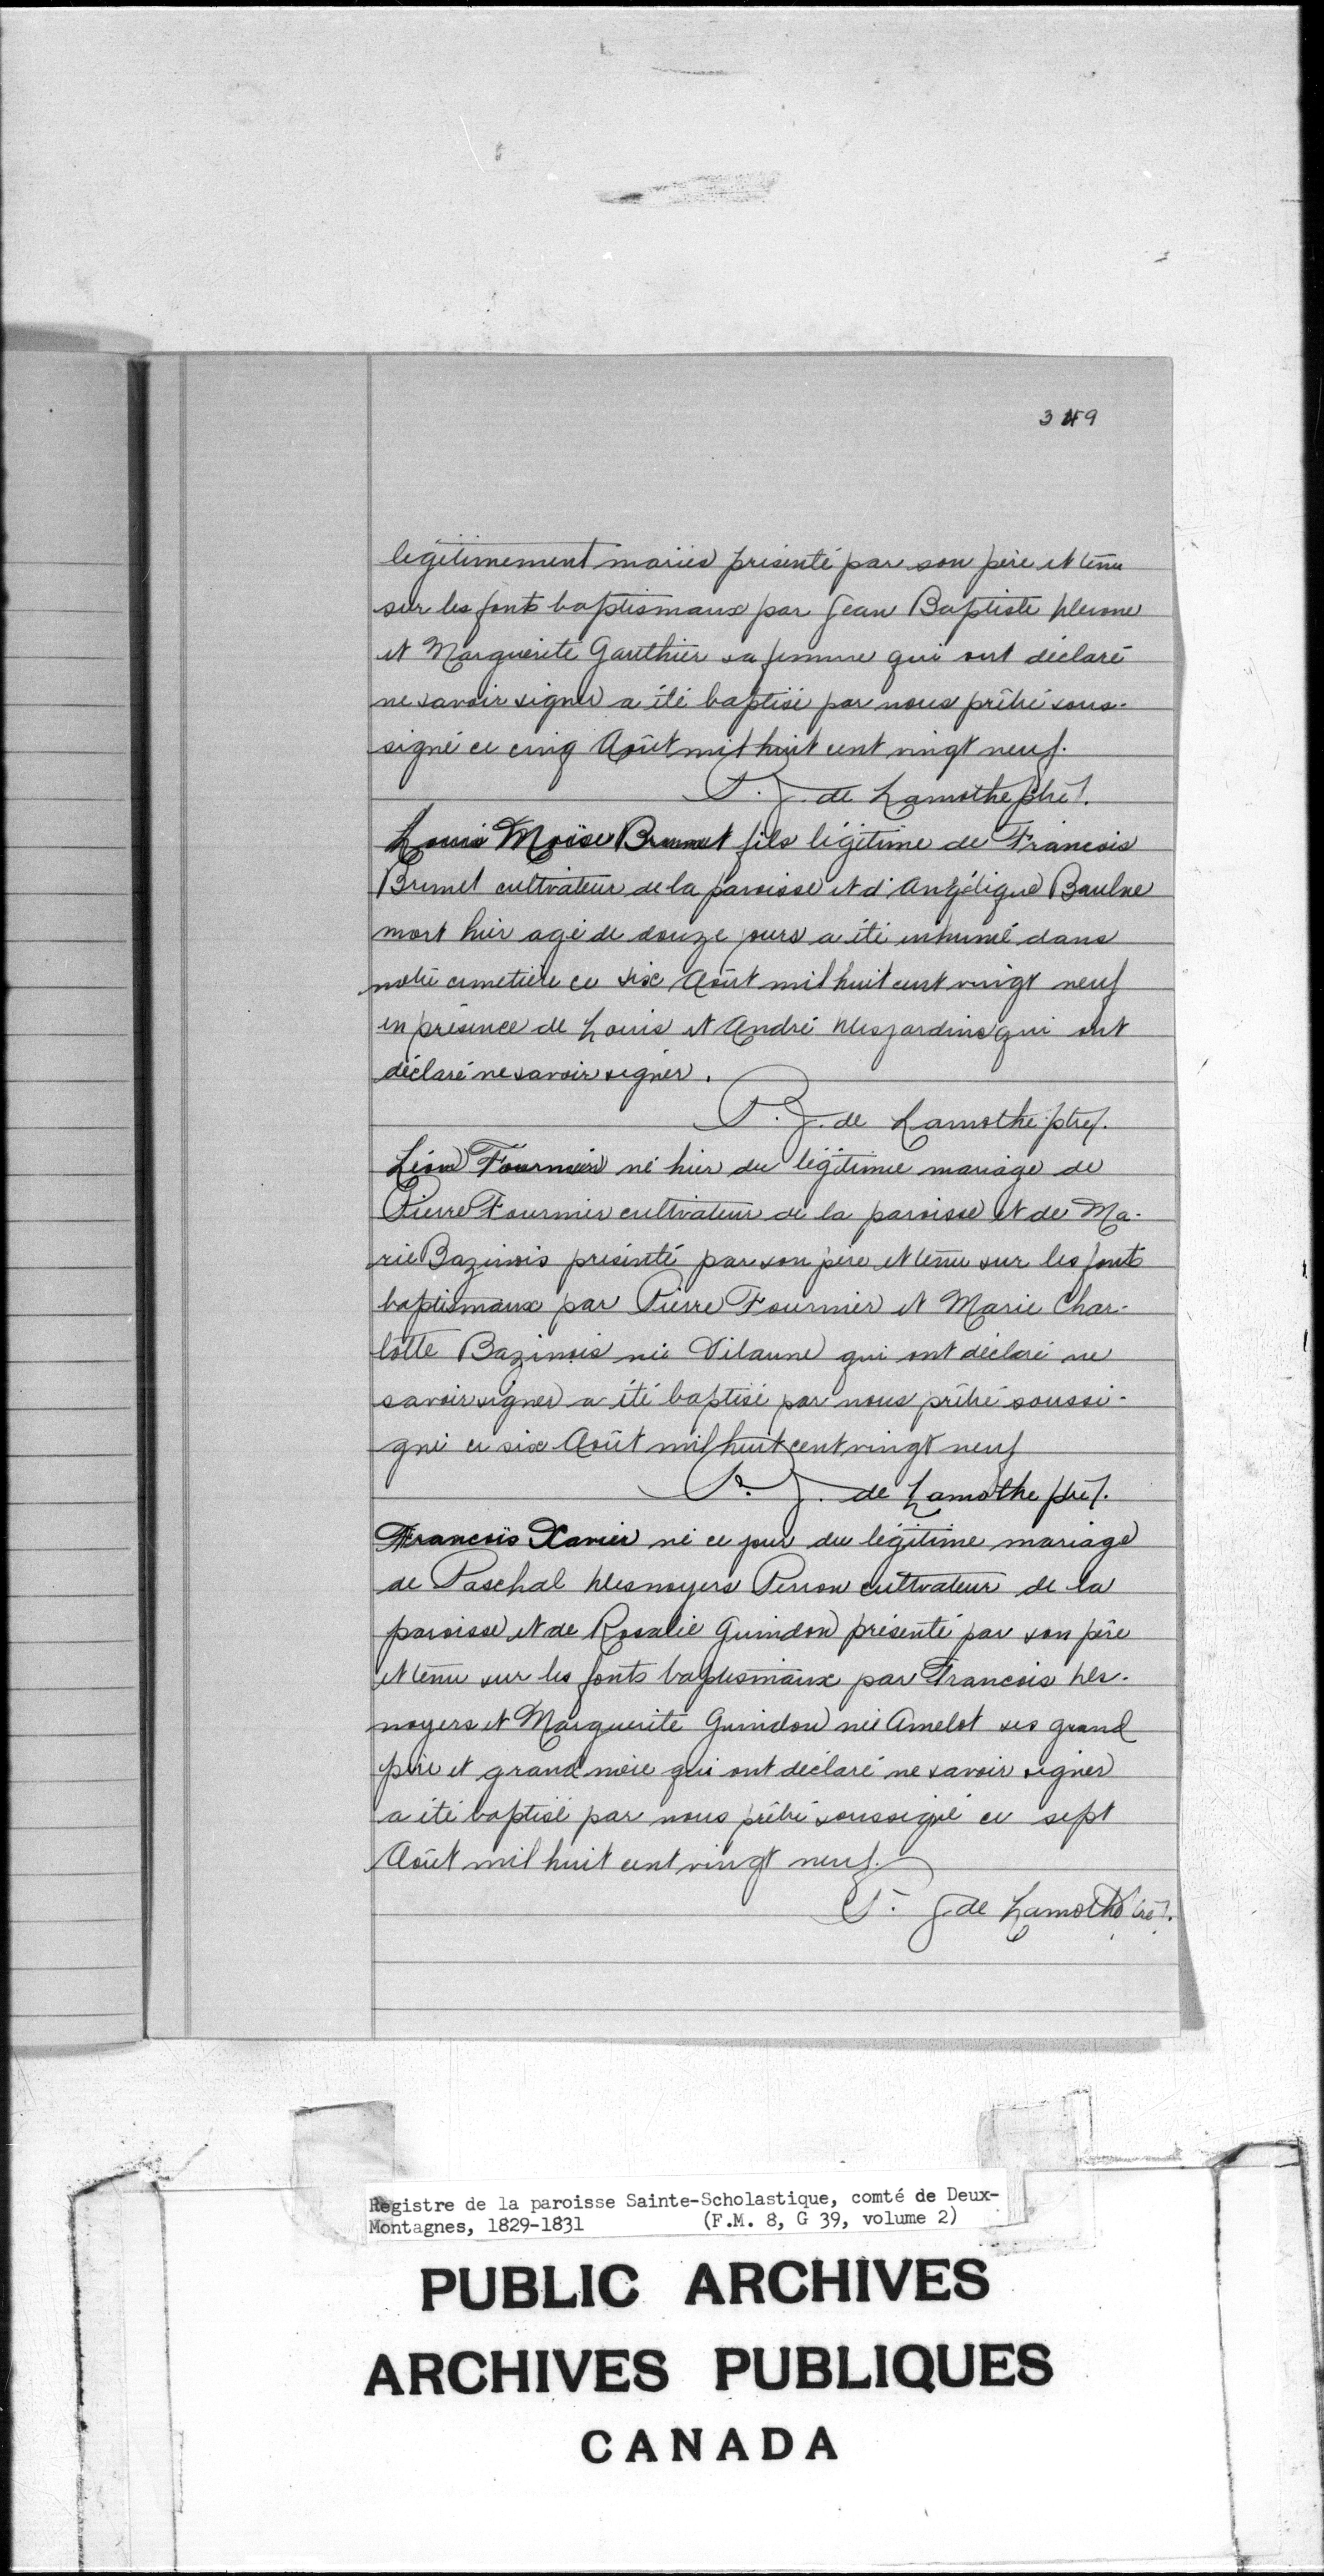 349
legitimement mariés présenté par son père et tenu
sur les fonts baptismaux par Jean Baptiste
et Marguerite Gauthier sa femme qui ont déclaré
ne savoir signer a été baptisé par nous prêtre sous-
signé ce cinq Août mil huit cent vingt neuf.
P. J. de Lamothe ptre.
Louis Moïse Brunet fils légitime de Francois
Brunet cultivateur de la paroisse et d'Angélique Baulne
mort hier agé de douze jours a été inhumé dans
notre cimetière ce six Août mil huit cent vingt neuf
en présence de Louis et André Desjardins qui ont
déclaré ne savoir signer.
P. J. de Lamothe ptre.
Léon Fournier né hier du légitime mariage de
Pierre Fournier cultivateur de la paroisse et de Ma-
rie Bazinois présenté par son père et tenu sur les fonts
baptismaux par Pierre Fournier et Marie Char-
lotte Bazinois née qui ont déclaré ne
savoir signer a été baptisé par nous prêtre soussi-
gné ce six Août mil huit cent vingt neuf
P. J. de Lamothe ptre.
Francois Xavier né ce jour du légitime mariage
de Paschal Desnoyers Perron cultivateur de la
paroisse et de Rosalie Guindon présenté par son père
et tenu sur les fonts baptismaux par Francois Des-
noyers et Marguerite Guindon née Amelot ses grand
père et grand mère qui ont déclaré ne savoir signer
a été baptisé par nous prêtre soussigné ce sept
Août mil huit cent vingt neuf.
P. J. de Lamothe ptre.
Registre de la paroisse Sainte-Scholastique, comté de Deux-
Montagnes, 1829-1831 (F.M. 8, G 39, volume 2)
PUBLIC ARCHIVES
ARCHIVES PUBLIQUES
CANADA